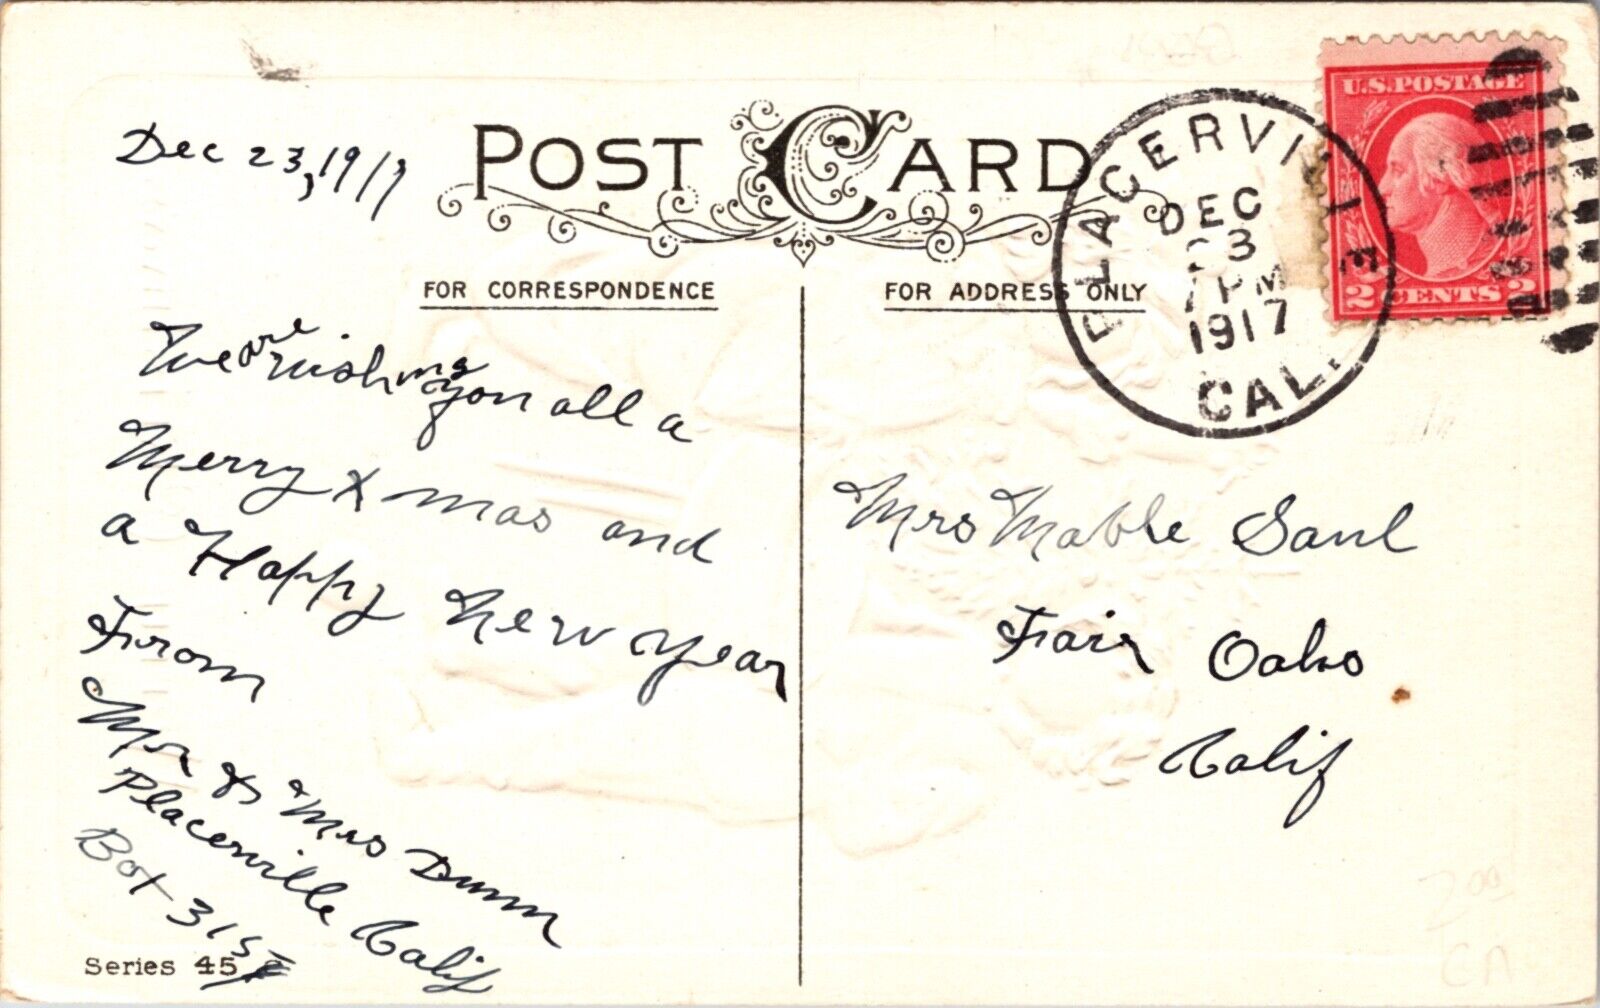 Dec 23, 1917
POST CARD
FOR CORRESPONDENCE
FOR ADDRESS ONLY
PLACERVILLE
DEC
23
PM
1917
CAL.
U.S. POSTAGE
2 CENTS 2
We are wishing you all a
Merry Xmas and
a Happy New Year
From
Mr & Mrs Dunn
Placerville Calif
Box 315
Series 45
Mrs Mable Saul
Fair Oaks
Calif
2.00
CA